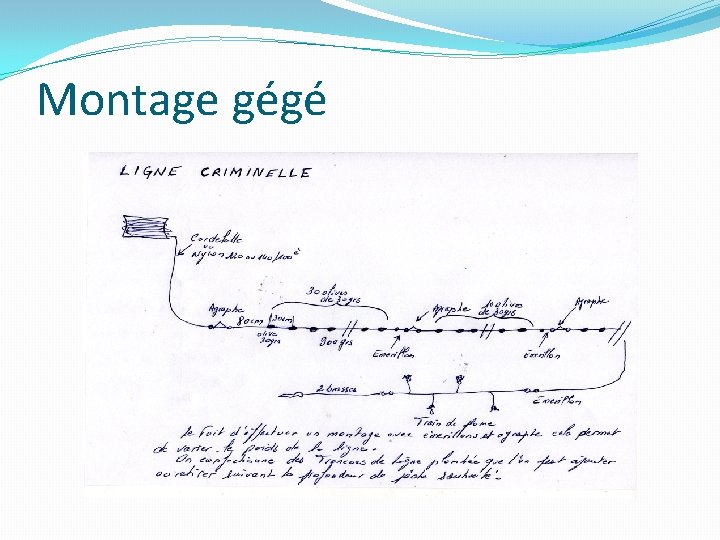 Montage gégé
LIGNE CRIMINELLE
Cordelette
ou
Nylon
30 olives
de 30grs
Agraphe
10 olives
de 30grs
Agraphe
Agraphe
80cm (30cm)
olive
30grs
300grs
Emerillon
émerillon
2 brasses
Emerillon
Train de plume
Le fait d'effectuer un montage avec émerillons et agraphe cela permet
de varier le poids de la ligne.
On confectionne des Troncons de ligne plombée que l'on peut ajouter
ou retirer suivant la profondeur de pêche souhaité.